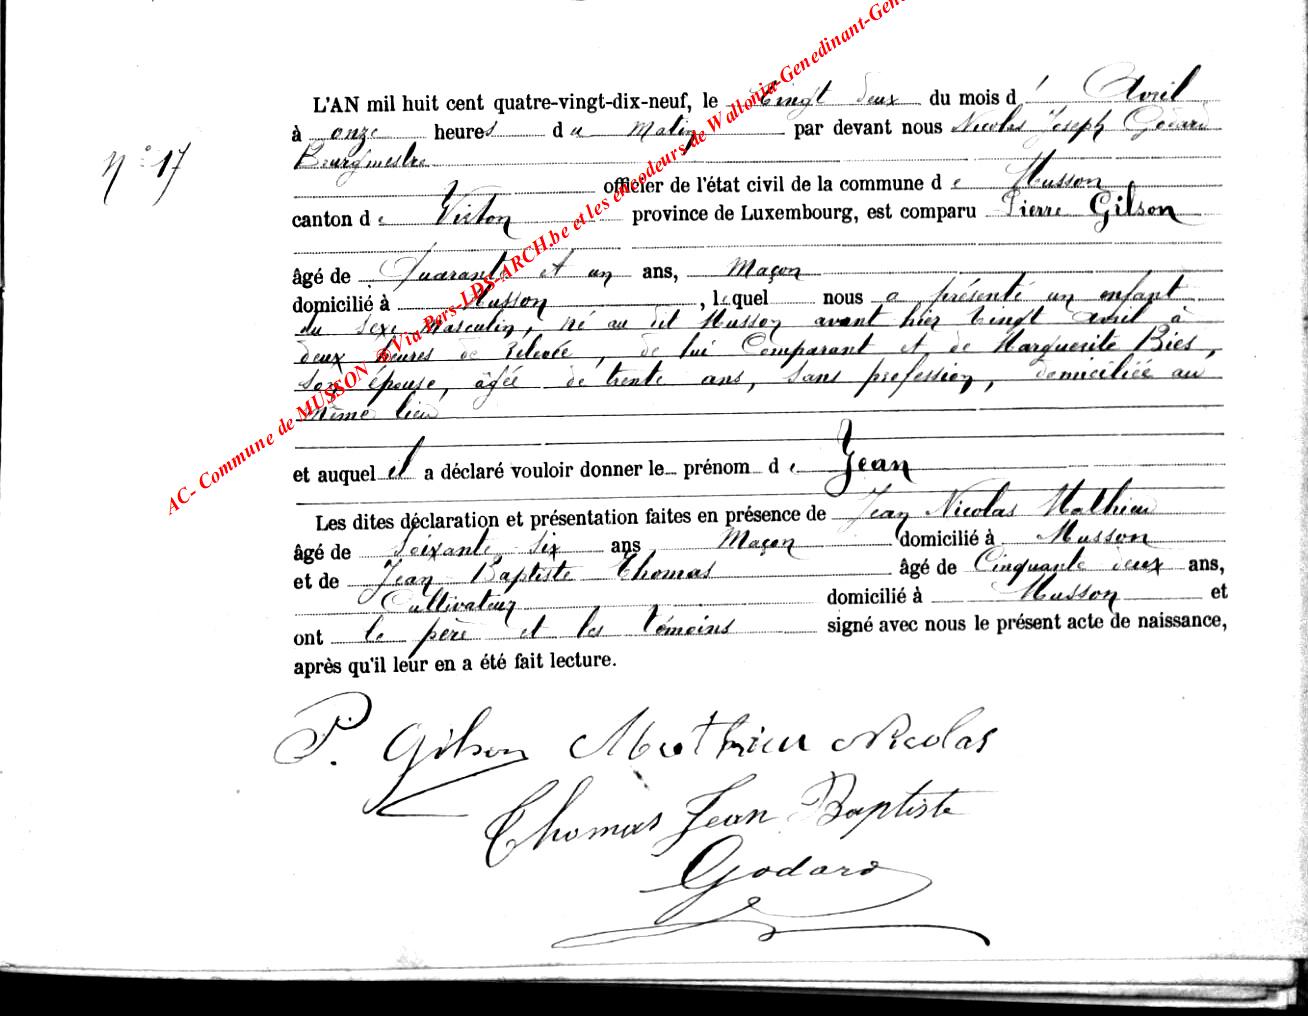 L'AN mil huit cent quatre-vingt-dix-neuf, le Vingt deux du mois d' Avril
à onze heures du Matin par devant nous Nicolas Joseph Godard
N° 17
Bourgmestre
officier de l'état civil de la commune de Musson
canton de Virton province de Luxembourg, est comparu Pierre Gilson
âgé de Quarante et un ans, Maçon
domicilié à Musson, lequel nous a présenté un enfant
du sexe Masculin, né au dit Musson avant hier vingt avril à
deux heures de relevée, de lui Comparant et de Marguerite Bies,
son épouse, âgée de trente ans, sans profession, domiciliée au
même lieu
et auquel il a déclaré vouloir donner le prénom de Jean
Les dites déclaration et présentation faites en présence de Jean Nicolas Mathieu
âgé de Soixante six ans Maçon domicilié à Musson
et de Jean Baptiste Thomas âgé de Cinquante deux ans,
Cultivateur domicilié à Musson et
ont le père et les témoins signé avec nous le présent acte de naissance,
après qu'il leur en a été fait lecture.
P. Gilson Mathieu Nicolas
Thomas Jean Baptiste
Godard
AC- Commune de MUSSON @ Via Pers-LDS-ARCH.be et les encodeurs de Wallonia-Genedinant-Gen